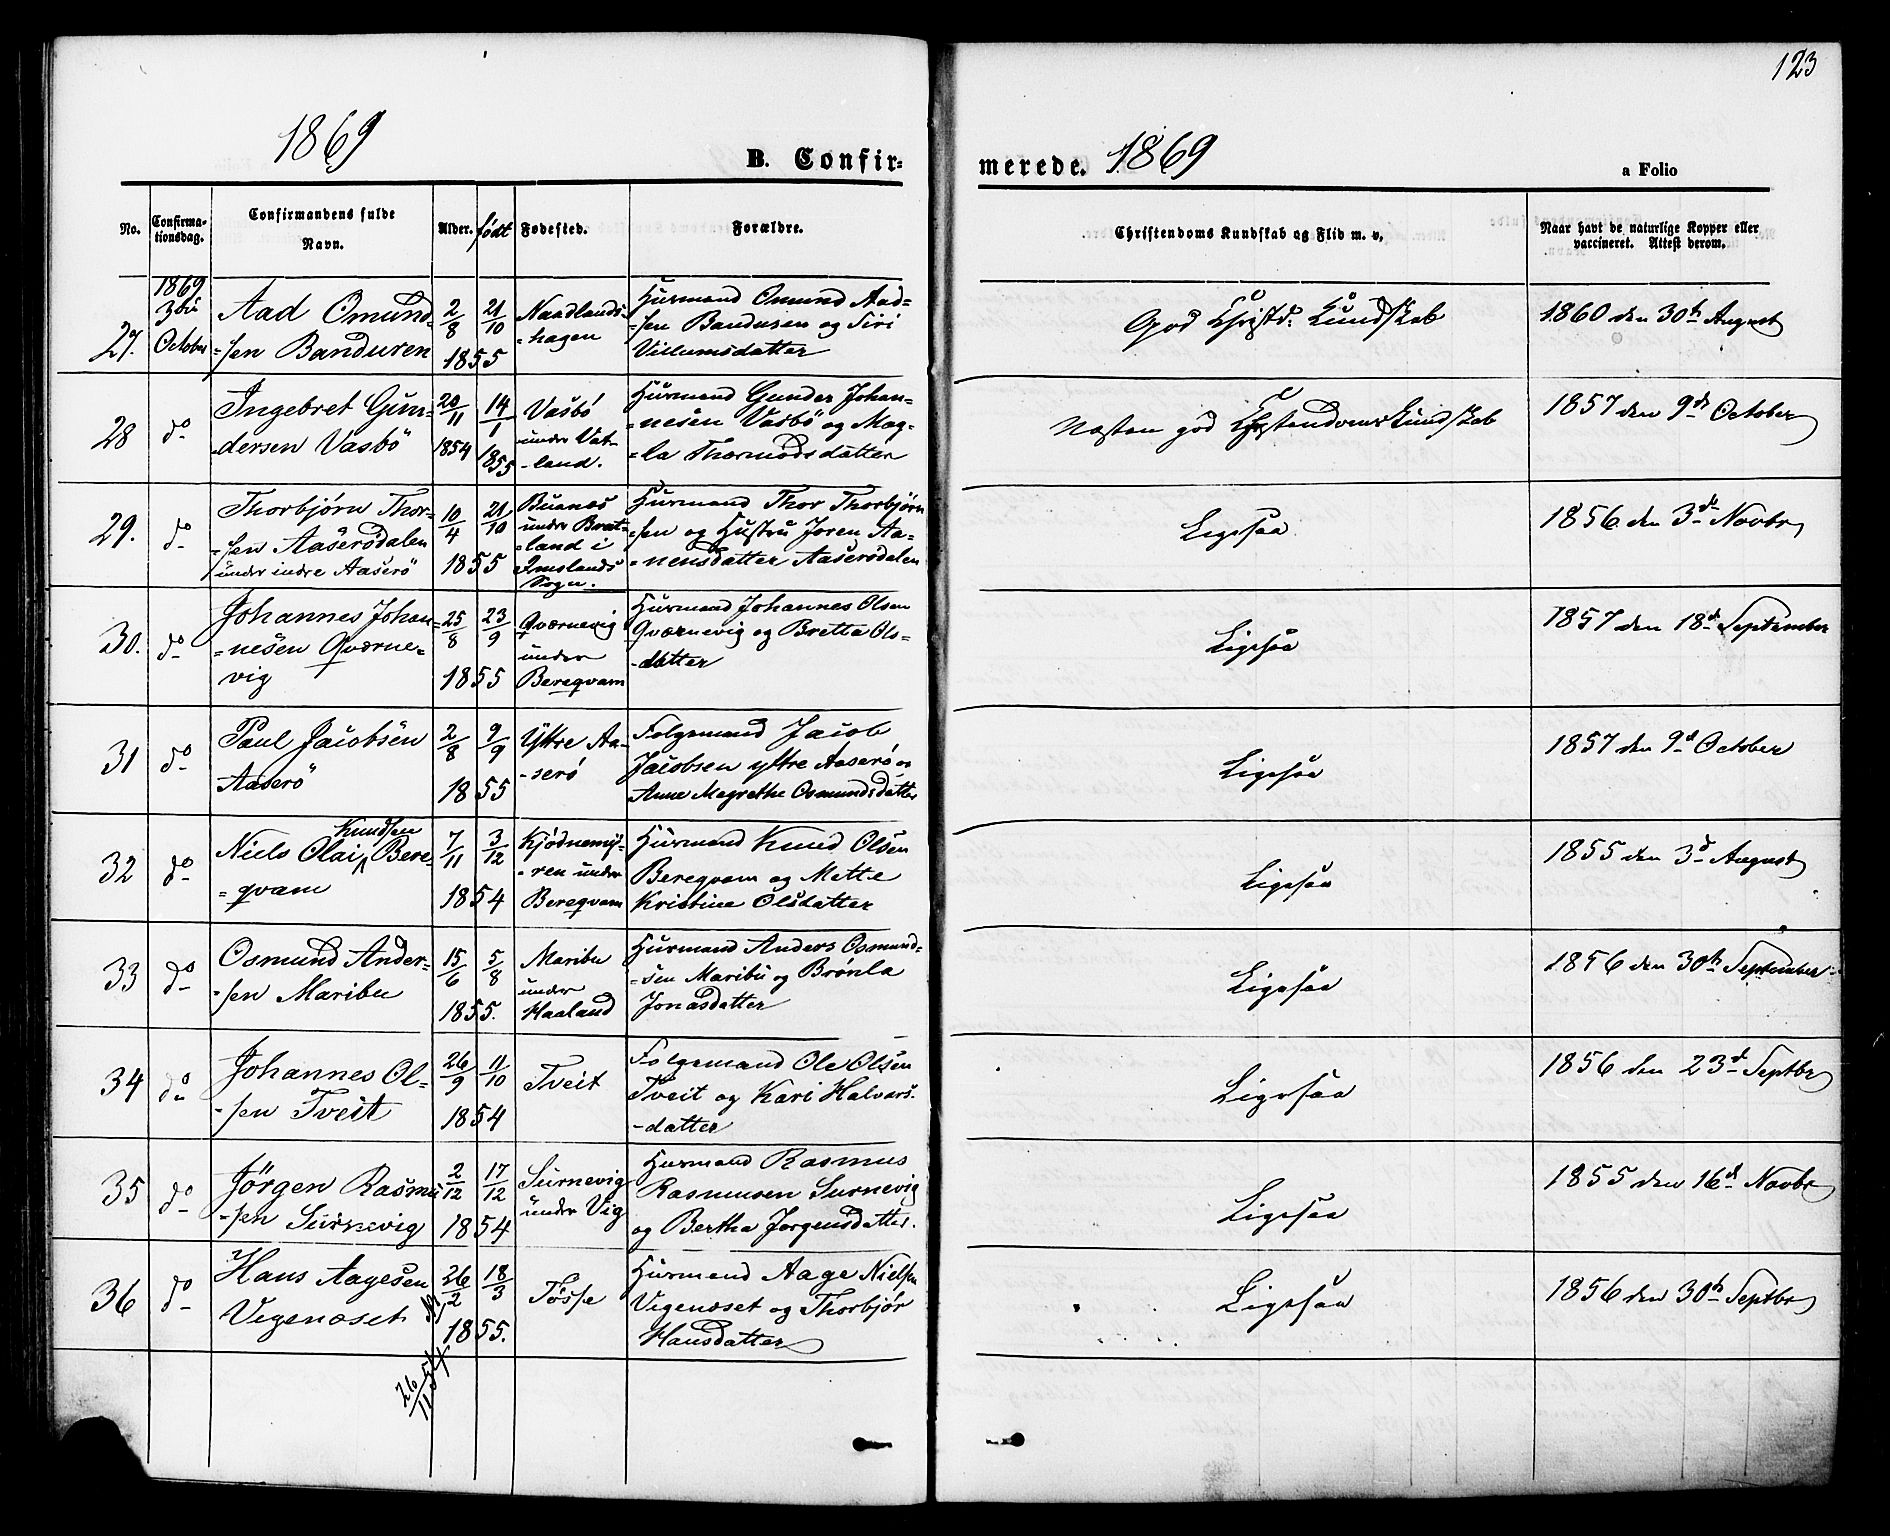 123
1869
B. Confir-
merede. 1869
a Folio
No.
Confirma-
tionsdag.
Confirmandens fulde
Navn.
Alder.
født
Fødested.
Forældre.
Christendoms Kundskab og Flid m. v.
Naar havt de naturlige Kopper eller
vaccineret. Attest derom.
27.
1869
3die
October
Aad Omund-
-sen Banduren
2/8
21/10
1855
Naadlands-
-hagen
Husmand Omund Aad-
-sen Banduren og Siri
Villumsdatter
God Christd. Kundskab
1860 den 30th August
28
do
Ingebret Gun-
-dersen Vasbö
20/11
1854
14/1
1855
Vasbö
under Vat-
-land.
Husmand Gunder Johan-
-nesen Vasbö og Mag-
-la Thormodsdatter
Næsten god Christendoms Kundskab
1857 den 9d October
29.
do
Thorbjørn Thor-
-sen Aaserödalen
under indre Aaserö
10/4
21/10
1855
Buanes
under Brat-
-land i
Imslands
Sogn.
Husmand Thor Thorbjörn
-sen og Hustru Joren Aa-
-nensdatter Aaserödalen
Ligesaa
1856 den 3de Novbr
30.
do
Johannes Johan-
-nesen Qværne-
vig
25/8
23/9
1855
Qværnevig
under
Bereqvam
Husmand Johannes Olsen
Qværnevig og Bretta Ols-
-datter
Ligesaa
1857 den 18d September
31
do
Paul Jacobsen
Aaserö
2/8
9/9
1855
Yttre Aa-
-serö
Folgemand Jacob
Jacobsen yttre Aaserö og
Anne Magrethe Osmundsdatter
Ligesaa
1857 den 9d October
32
do
Knudsen
Niels Olai Bere-
-qvam
7/11
3/12
1854
Kjødnemy-
-ren under
Bereqvam
Husmand Knud Olsen
Bereqvam og Mette
Kristine Olsdatter
Ligesaa
1855 den 3d August
33
do
Osmund Ander-
-sen Maribu
15/6
5/8
1855.
Maribu
under
Haaland
Husmand Anders Osmund-
-sen Maribu og Brönla
Jonasdatter
Ligesaa
1856 den 30th September
34
do
Johannes Ol-
-sen Tveit
26/9
11/10
1854
Tveit
Folgemand Ole Olsen
Tveit og Kari Halvars-
-datter
Ligesaa
1856 den 23d Septbr
35
do
Jörgen Rasmu
-sen Surnevig
2/12
17/12
1854
Surnevig
under Vig
Husmand Rasmus
Rasmusen Surnevig
og Bertha Jorgensdatter.
Ligesaa
1855 den 16d Novbr
36
do
Hans Aagesen
Vegenæset
26/2
18/3
1855.
Tösse
Husmand Aage Nielsen
Vegenæset og Thorbjör
Hansdatter
Ligesaa
1856 den 30th Septbr
26/11 54.